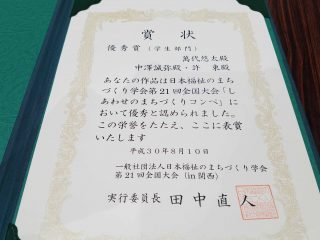 賞状
優秀賞(学生部門)
萬代悠太殿
中澤誠弥殿・許 東殿
あなたの作品は日本福祉のまち
づくり学会第21回全国大会「し
あわせのまちづくりコンペ」に
おいて優秀と認められました。
この栄誉をたたえ、ここに表賞
いたします
平成30年8月10日
一般社団法人日本福祉のまちづくり学会
第21回全国大会(in関西)
実行委員長 田中直人